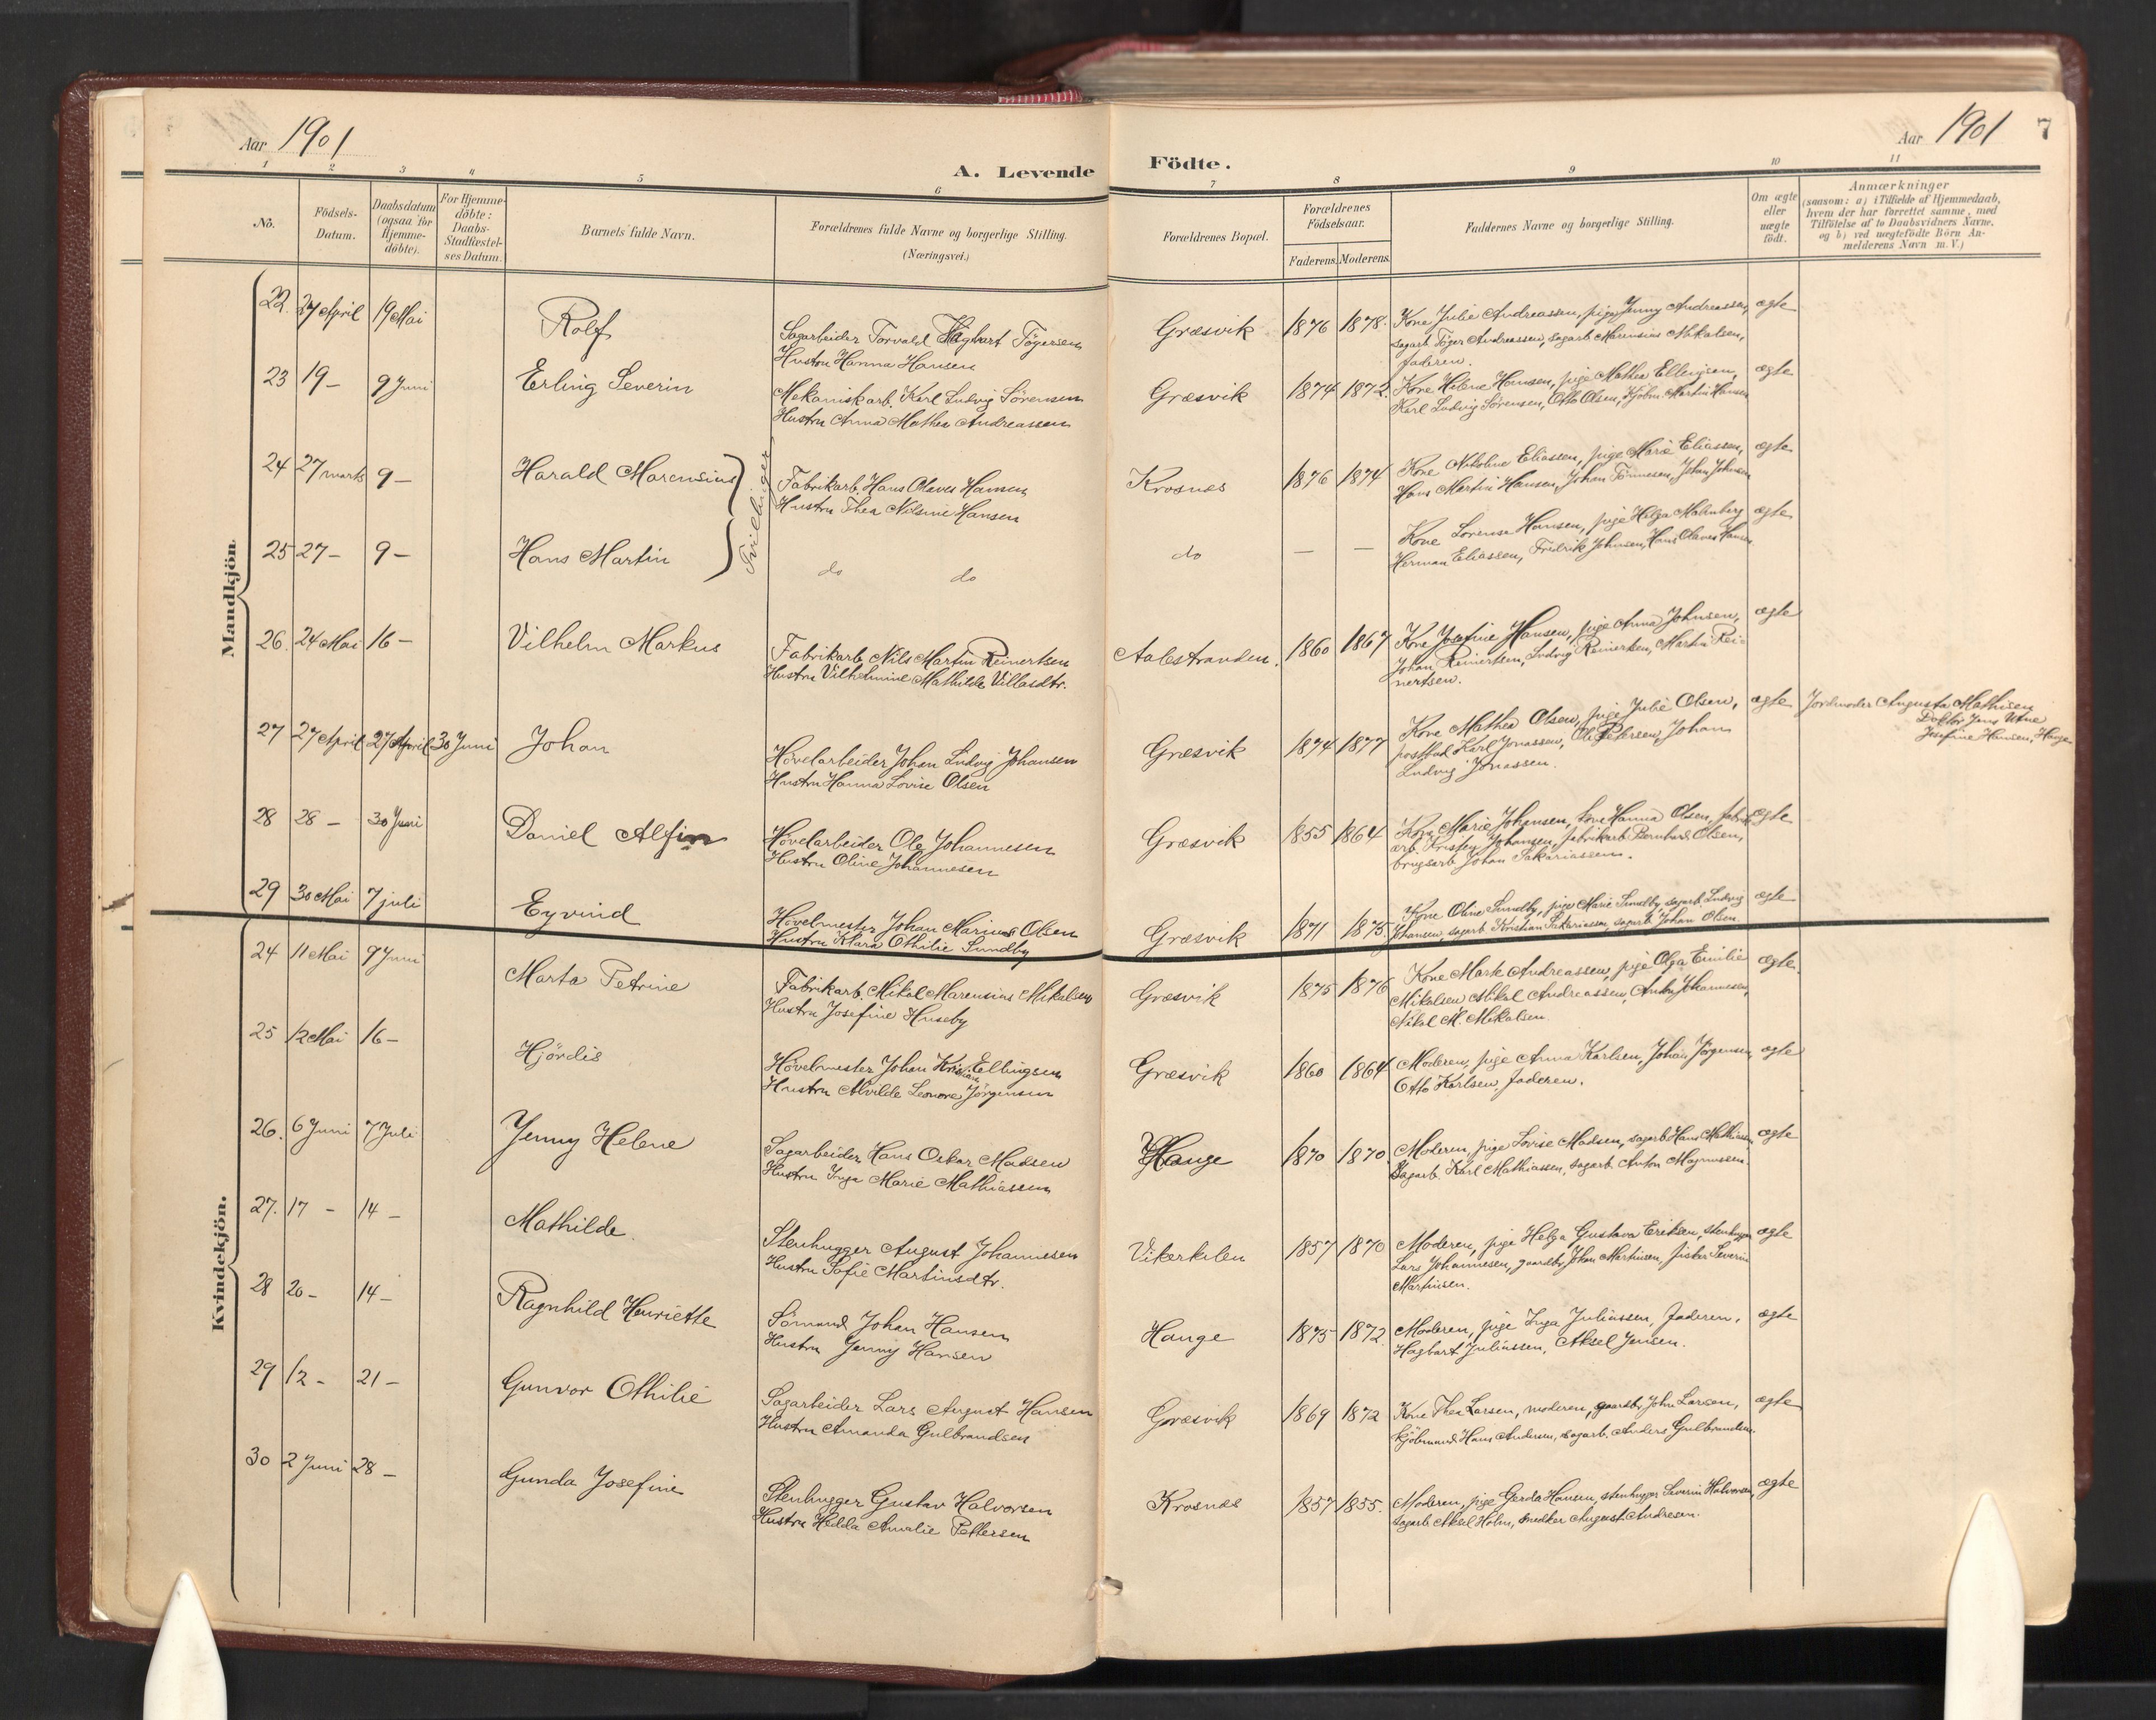 Aar 1901
A. Levende Födte.
Aar 1901 7
1 2 3 4 5 6 7 8 9 10 11
No.
Födsels-
Datum.
Daabsdatum
(ogsaa for
Hjemme-
döbte).
For Hjemme-
döbte:
Daabs-
Stadfæstel-
ses Datum.
Barnets fulde Navn.
Forældrenes fulde Navne og borgerlige Stilling.
(Næringsvei.)
Forældrenes Bopæl.
Forældrenes
Födselsaar.
Faderens. Moderens.
Faddernes Navne og borgerlige Stilling.
Om ægte
eller
uægte
födt.
Anmærkninger
(saasom: a) i Tilfælde af Hjemmedaab,
hvem der har forrettet samme, med
Tilföielse af to Daabsvidners Navne,
og b) ved uægtefödte Börn An-
melderens Navn m. V.)
Mandkjön.
22. 27 April 19 Mai Rolf
Sagarbeider Torvald Hagbart Tögersen
Hustru Hanna Hansen
Græsvik 1876 1878.
Kone Julie Andreassen, pige Jenny Andreassen,
sagarb. Töger Andreassen, sagarb. Marensius Mikalsen,
faderen.
ægte
23 19 – 9 Juni Erling Severin
Mekaniskarb. Karl Ludvig Sörensen
Hustru Anna Mathea Andreassen
Græsvik 1874 1872.
Kone Helene Hansen, pige Mathea Ellingsen,
Karl Ludvig Sörensen, Otto Olsen, Kjöbm. Martin Hansen
ægte
24 27 marts 9 – Harald Marensius
Tvillinger
Fabrikarb. Hans Olaves Hansen
Hustru Thea Nilsine Hansen
Krosnes 1876 1874
Kone Nikoline Eliassen, pige Marie Eliassen,
Hans Martin Hansen, Johan Tönnesen, Johan Johnsen
ægte
25 27 – 9 – Hans Martin
do do
do – –
Kone Lorense Hansen, pige Helga Malmberg
Herman Eliassen, Fredrik Johnsen, Hans Olaves Hansen
ægte
26. 24 Mai 16 – Vilhelm Markus
Fabrikarb. Nils Martin Reinertsen
Hustru Vilhelmine Mathilde Villasdtr.
Aalestranden. 1860 1867
Kone Josefine Hansen, pige Anna Johnsen,
Johan Reinertsen, Ludvig Reinertsen, Martin Rei-
nertsen.
ægte
27 27 April 27 April 30 Juni Johan
Hövelarbeider Johan Ludvig Johansen
Hustru Hanna Lovise Olsen
Græsvik 1874 1877
Kone Mathea Olsen, pige Julie Olsen,
postbud Karl Jonassen, Ole Petersen, Johan
Ludvig Jonassen.
ægte
Jordmoder Augusta Mathisen
Doktor Jens
Josefine Hansen, Hauge
28 28 – 30 Juni Daniel Alfin
Hövelarbeider Ole Johannesen
Hustru Oline Johannesen
Græsvik 1855 1864
Kone Marie Johansen, kone Hanna Olsen, fabrik-
arb. Kristen Johansen, fabrikarb. Bernhard Olsen,
brugsarb. Johan Sakariassen.
ægte
29 30 Mai 7 juli Eyvind
Hövelmester Johan Marius Olsen
Hustru Klara Othilie Sundby
Græsvik 1871 1875.
Kone Oline Sundby, pige Marie Sundby, sagarb. Ludvig
Johansen, sagarb. Kristian Sakariassen, sagarb. Johan Olsen.
ægte
Kvindekjön.
24 11 Mai 9 Juni Marta Petrine
Fabrikarb. Mikal Marensius Mikalsen
Hustru Josefine Huseby
Græsvik 1875 1876
Kone Marte Andreassen, pige Olga Emilie
Mikalsen, Mikal Andreassen, Anton Johannesen,
Mikal M. Mikalsen.
ægte.
25 12 Mai 16 – Hjördis
Hövelmester Johan Kristian Ellingsen
Hustru Alvilde Leonore Jörgensen
Græsvik 1860 1864
Moderen, pige Anna Karlsen, Johan Jörgensen,
Otto Karlsen, faderen.
ægte
26. 6 Juni 7 Juli Jenny Helene
Sagarbeider Hans Oskar Madsen
Hustru Inga Marie Mathiassen
Hauge 1870 1870.
Moderen, pige Lovise Madsen, sagarb. Hans Mathiassen,
Sagarb. Karl Mathiassen, sagarb. Anton Magnussen.
ægte
27. 17 – 14 – Mathilde.
Stenhugger August Johannesen
Hustru Sofie Martinsdtr.
Vikerkilen 1857 1870
Moderen, pige Helga Gustava Eriksen, stenhugger
Lars Johannesen, gaardbr. Johan Martinsen, fisker Severin
Martinsen.
ægte
28 20 – 14 – Ragnhild Henriette
Sömand Johan Hansen
Hustru Jenny Hansen
Hauge 1875 1872.
Moderen, pige Inga Juliussen, faderen,
Hagbart Juliussen, Aksel Jensen.
ægte
29 12 – 21 – Gunvor Othilie
Sagarbeider Lars August Hansen
Hustru Amanda Gulbrandsen
Græsvik 1869 1872
Kone Thea Larsen, moderen, gaardbr. John Larsen,
kjöbmand Hans Andersen, sagarb. Anders Gulbrandsen.
ægte
30 2 Juni 28 – Gunda Josefine
Stenhugger Gustav Halvorsen
Hustru Hedda Amalie Pettersen
Krosnes 1857 1855.
Moderen, pige Gerda Hansen, stenhugger Severin Halvorsen,
sagarb. Aksel Holm, snedker August Andresen.
ægte